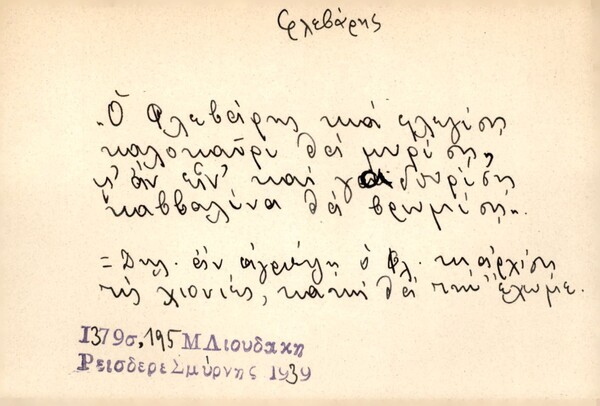 Φλεβάρης
„Ὁ Φλεβάρης κιἂ φλεγίσῃ
καλοκαῦρι θἀ μυρίσῃ,
κ' ἂν εἶν' καὶ γαδουρίσῃ
καββαλίνα θἀ βρωμίσῃ".
= Δηλ. ἐὰν ἀγριέψῃ ὁ Φλ. κι ἀρχίσῃ
τὶς χιονιές, κακὴ θἀ τὴν ἔχωμε.
1379σ, 195 Μ Λιουδακη
Ρεισδερε Σμύρνης 1939